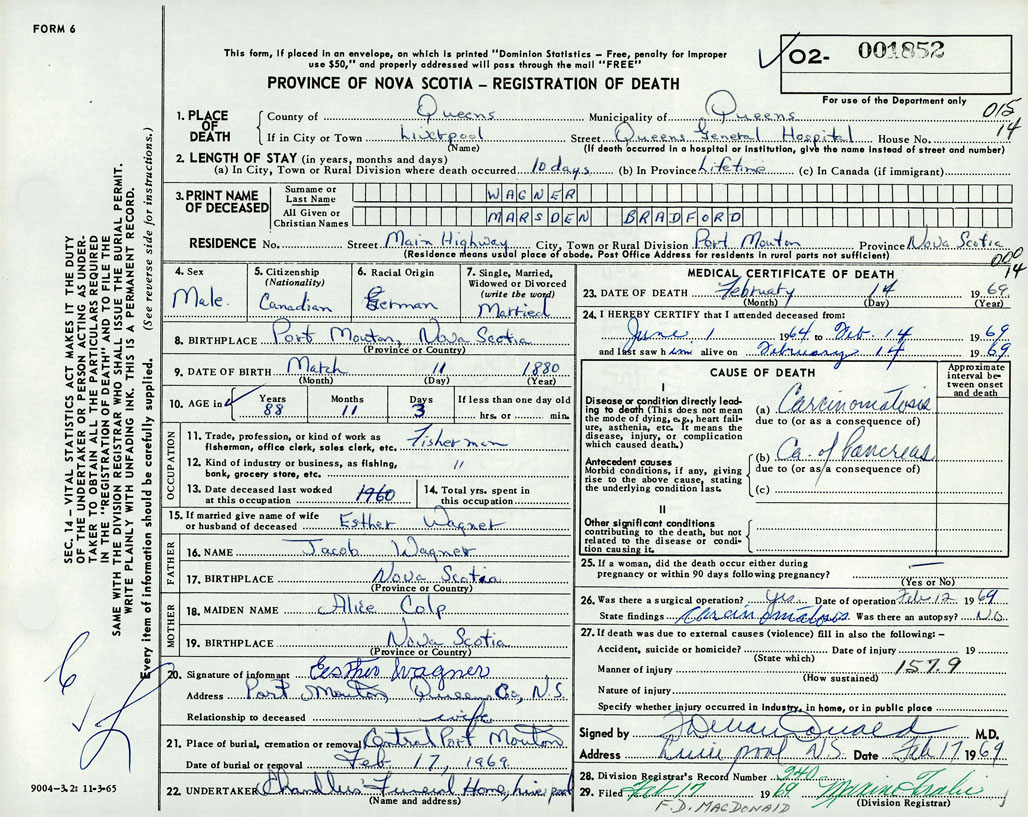 FORM 6
This form, if placed in an envelope, on which is printed "Dominion Statistics – Free, penalty for improper
use $50," and properly addressed will pass through the mail "FREE"
PROVINCE OF NOVA SCOTIA – REGISTRATION OF DEATH
O2- 001852
For use of the Department only
015
14
1. PLACE OF DEATH
County of Queens Municipality of Queens
If in City or Town Liverpool Street Queens General Hospital House No.
(Name) (If death occurred in a hospital or institution, give the name instead of street and number)
2. LENGTH OF STAY (in years, months and days)
(a) In City, Town or Rural Division where death occurred 10 days (b) In Province Lifetime (c) In Canada (if immigrant)
3. PRINT NAME OF DECEASED
Surname or Last Name WAGNER
All Given or Christian Names MARSDEN BRADFORD
RESIDENCE No. Street Main Highway City, Town or Rural Division Port Mouton Province Nova Scotia
(Residence means usual place of abode. Post Office Address for residents in rural parts not sufficient)
000
14
4. Sex
Male
5. Citizenship
(Nationality)
Canadian
6. Racial Origin
German
7. Single, Married,
Widowed or Divorced
(write the word)
Married
8. BIRTHPLACE Port Mouton, Nova Scotia
(Province or Country)
9. DATE OF BIRTH March 11 1880
(Month) (Day) (Year)
10. AGE in
Years Months Days If less than one day old
88 11 3 hrs. or min.
OCCUPATION
11. Trade, profession, or kind of work as Fisherman
fisherman, office clerk, sales clerk, etc.
12. Kind of industry or business, as fishing, "
bank, grocery store, etc.
13. Date deceased last worked
at this occupation 1960
14. Total yrs. spent in
this occupation
15. If married give name of wife
or husband of deceased Esther Wagner
FATHER
16. NAME Jacob Wagner
17. BIRTHPLACE Nova Scotia
(Province or Country)
MOTHER
18. MAIDEN NAME Alice Colp
19. BIRTHPLACE Nova Scotia
(Province or Country)
20. Signature of informant Esther Wagner
Address Port Mouton, Queens Co., N.S.
Relationship to deceased wife
21. Place of burial, cremation or removal Central Port Mouton
Date of burial or removal Feb 17, 1969
22. UNDERTAKER Chandlers Funeral Home, Liverpool
(Name and address)
MEDICAL CERTIFICATE OF DEATH
23. DATE OF DEATH February 14 1969
(Month) (Day) (Year)
24. I HEREBY CERTIFY that I attended deceased from:
June 1 1964 to Feb. 14 1969
and last saw him alive on February 14 1969
CAUSE OF DEATH
Approximate
interval be-
tween onset
and death
I
Disease or condition directly lead-
ing to death (This does not mean
the mode of dying, e.g., heart fail-
ure, asthenia, etc. It means the
disease, injury, or complication
which caused death.)
(a) Carcinomatosis
due to (or as a consequence of)
Antecedent causes
Morbid conditions, if any, giving
rise to the above cause, stating
the underlying condition last.
(b) Ca. of Pancreas
due to (or as a consequence of)
(c)
II
Other significant conditions
contributing to the death, but not
related to the disease or condi-
tion causing it.
25. If a woman, did the death occur either during
pregnancy or within 90 days following pregnancy? —
(Yes or No)
26. Was there a surgical operation? Yes Date of operation Feb 12 1969
State findings Carcinomatosis Was there an autopsy? NO
27. If death was due to external causes (violence) fill in also the following: –
Accident, suicide or homicide? Date of injury 19
(State which)
Manner of injury 157.9
(How sustained)
Nature of injury
Specify whether injury occurred in industry, in home, or in public place
Signed by M.D.
Address Liverpool N.S. Date Feb 17 1969
28. Division Registrar's Record Number
29. Filed Feb 17 1969
(Division Registrar)
F.D. MACDONALD
SEC. 14 – VITAL STATISTICS ACT MAKES IT THE DUTY
OF THE UNDERTAKER OR PERSON ACTING AS UNDER-
TAKER TO OBTAIN ALL THE PARTICULARS REQUIRED
IN THE "REGISTRATION OF DEATH" AND TO FILE THE
SAME WITH THE DIVISION REGISTRAR WHO SHALL ISSUE THE BURIAL PERMIT.
WRITE PLAINLY WITH UNFADING INK. THIS IS A PERMANENT RECORD.
Every item of information should be carefully supplied. (See reverse side for instructions.)
6
9004-3.2: 11-3-65